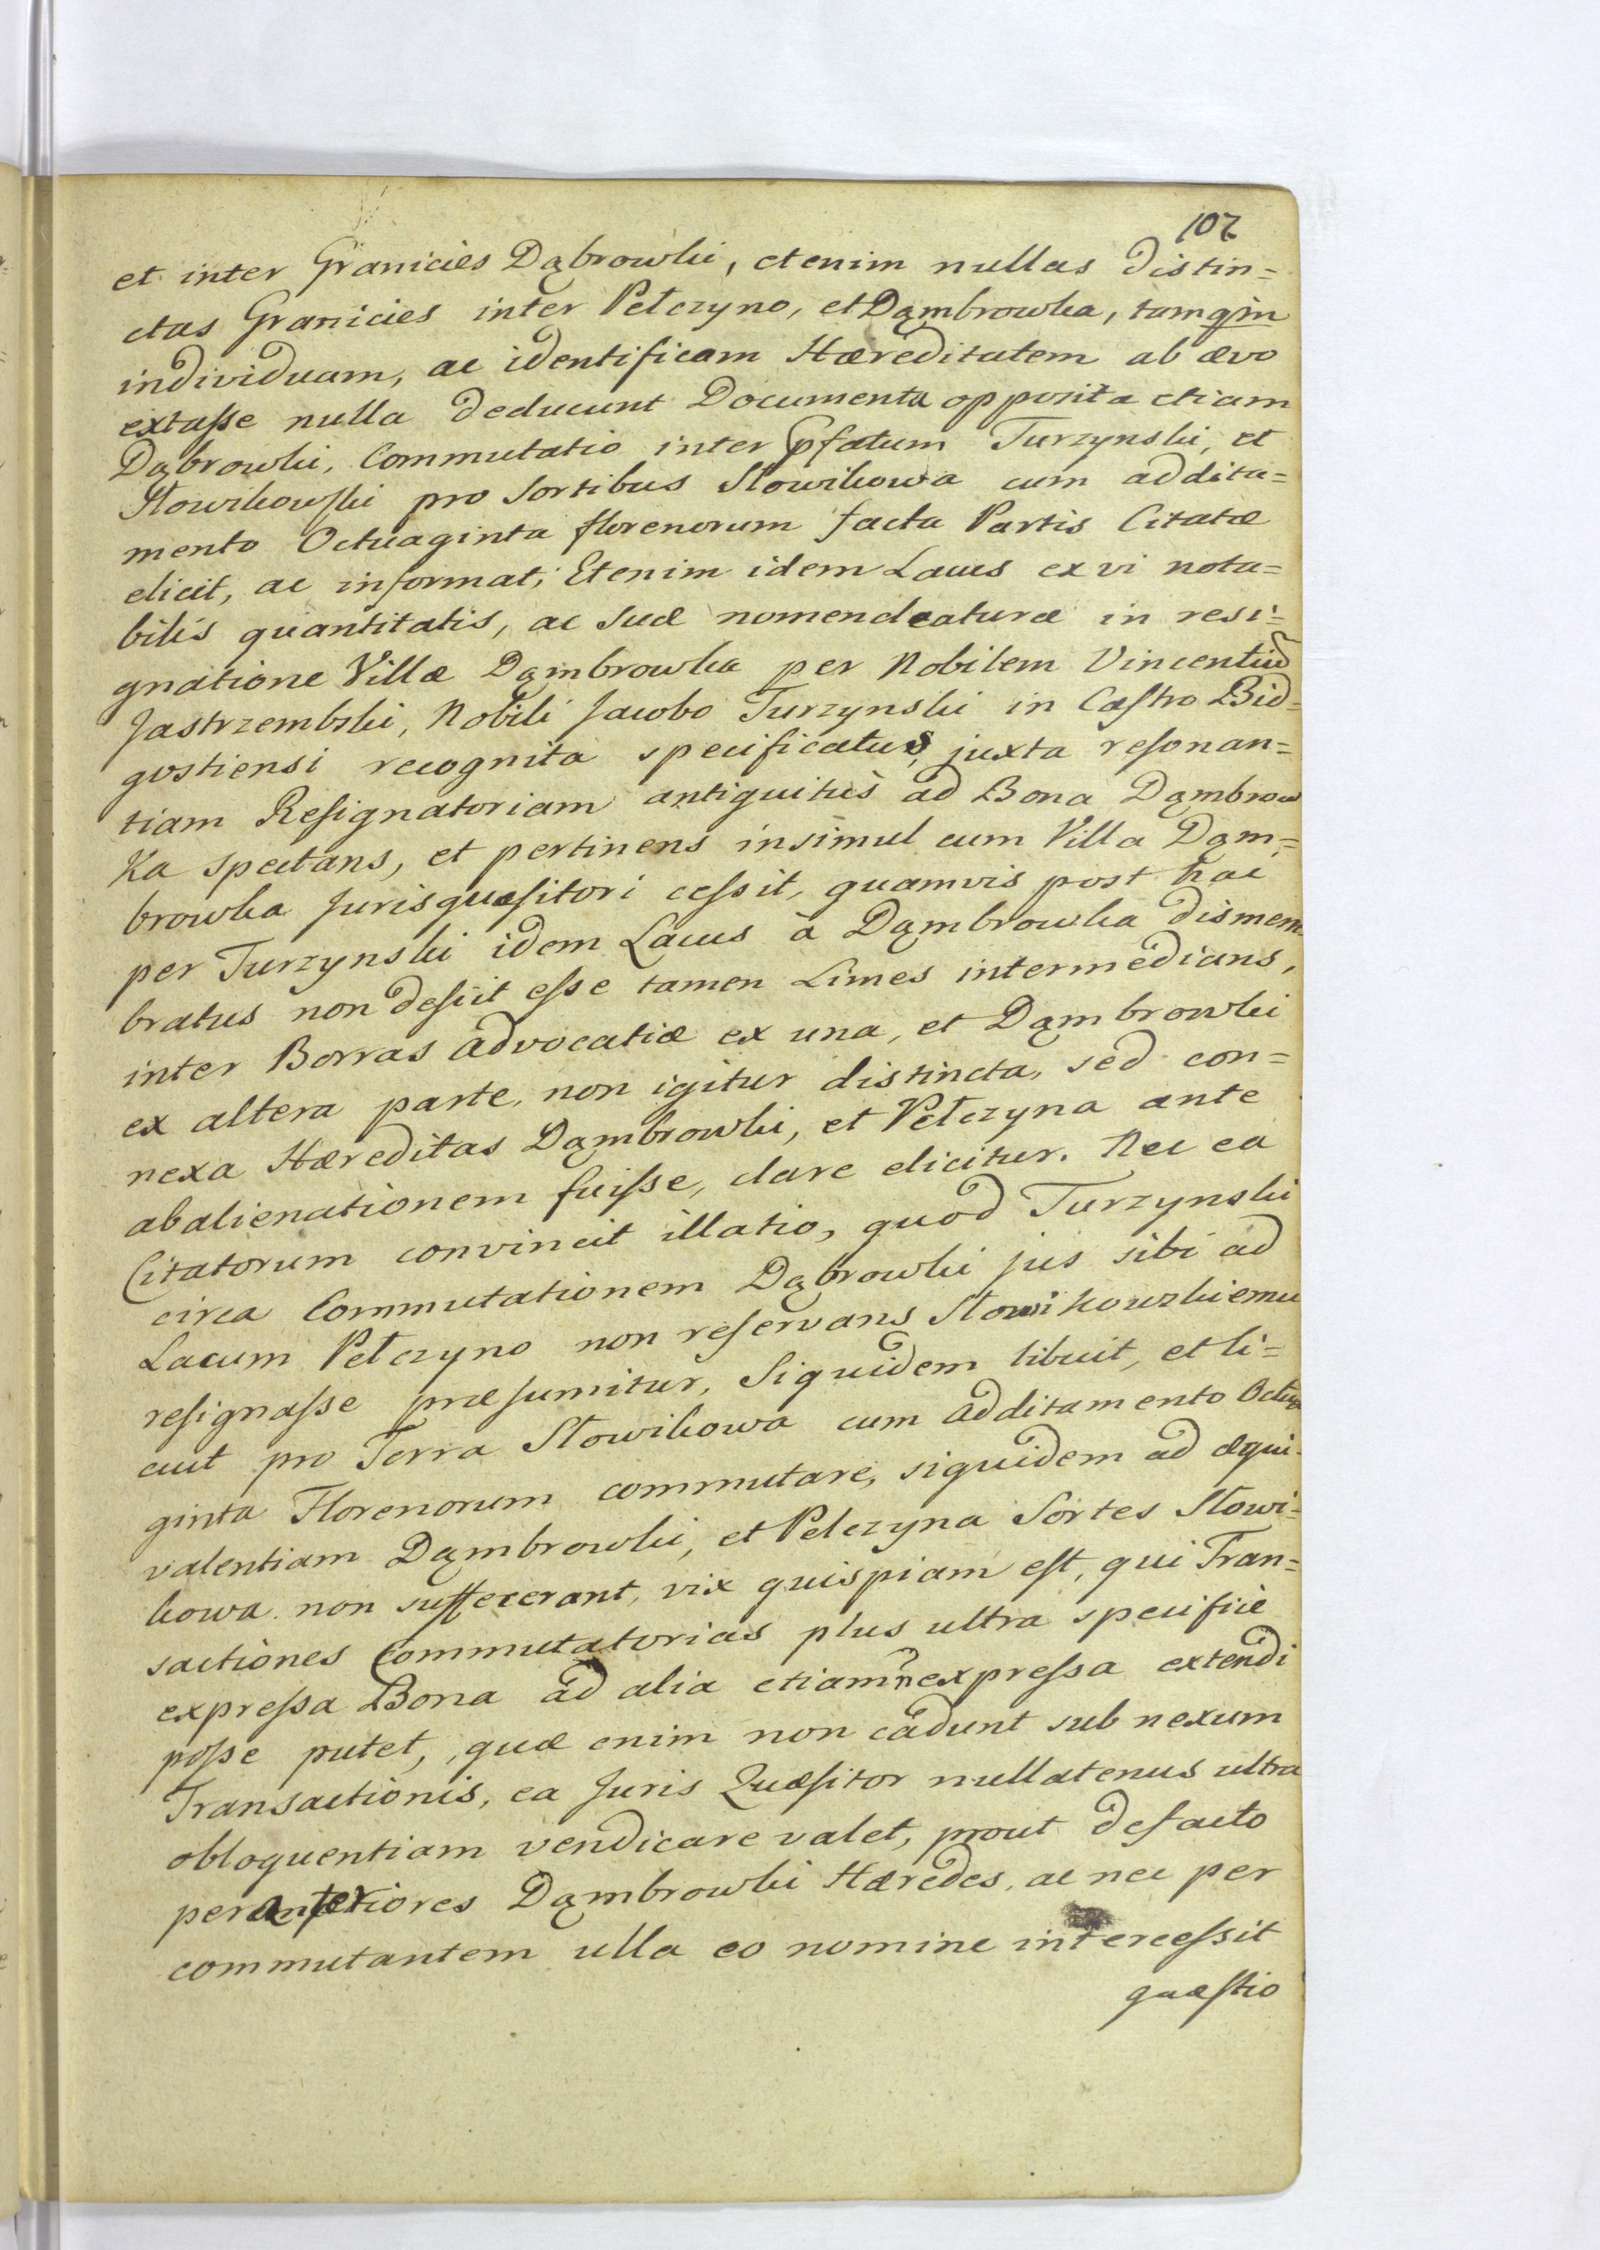 107
et inter Granicies Dąbrowki, etenim nullas distin=
ctas Granicies inter Pełczyno, et Dąmbrowka, tamqm
individuam, ac identificam Hæreditatem ab ævo
extasse nulla deducunt Documenta opposita etiam
Dąbrowki, Commutatio inter pfatum Turzynski, et
Słowikowski pro Sortibus Słowikowa cum addita=
mento Octuaginta florenorum facta Partis Citatæ
elicit, ac informat; Etenim idem Lacus ex vi nota=
bilis quantitatis, ac suæ nomenclaturæ in resi=
gnatione Villæ Dąmbrowka per Nobilem Vincentiu
Jastrzembski, Nobili Jacobo Turzynski in Castro Bid=
gostiensi recognita specificatus, juxta resonan=
tiam Resignatoriam antiquitùs ad Bona Dąmbrow
ka spectans, et pertinens insimul cum Villa Dąm=
browka Jurisquæsitori cessit, quamvis post hac
per Turzynski idem Lacus à Dąmbrowka dismem
bratus non desiit esse tamen Limes intermedians,
inter Borras advocatiæ ex una, et Dąmbrowki
ex altera parte, non igitur distincta, sed con=
nexa Hæreditas Dąmbrowki, et Pełczyna ante
abalienationem fuisse, clare elicitur. Nec ea
Citatorum convincit illatio, quod Turzynski
circa Commutationem Dąbrowki jus sibi ad
Lacum Pełczyno non reservans Słowikowskiemu
resignasse præsumitur, Siquidem libuit, et li=
cuit pro Terra Słowikowa cum additamento Octua
ginta Florenorum commutare, siquidem ad æqui=
valentiam Dąmbrowki, et Pelczyna Sortes Słowi=
kowa non suffecerant, vix quispiam est, qui Tran=
sactiones Commutatorias plus ultra specificè
expressa Bona ad alia etiam nexpressa extendi
posse putet, quæ enim non cadunt sub nexum
Transactionis, ea Juris Quæsitor nullatenus ultra
obloquentiam vendicare valet, prout defacto
per anteriores Dąmbrowki Hæredes, ac nec per
commutantem ulla eo nomine intercessit
quæstio